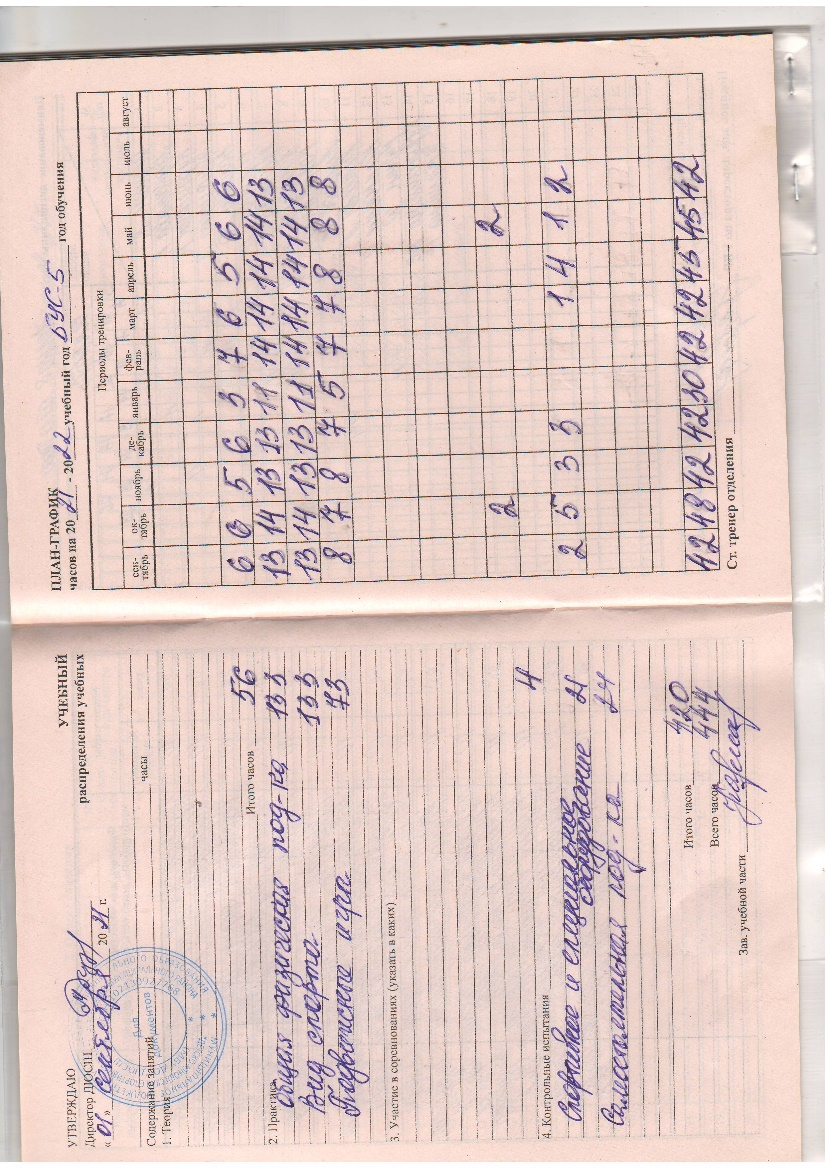 УТВЕРЖДАЮ
Директор ДЮСШ
« 01 » сентября 20 21 г.
УЧЕБНЫЙ
распределения учебных
Содержание занятий
часы
1. Теория
Итого часов 56
2. Практика
Общая физическая под-ка 133
Вид спорта 133
Подвижные игры 73
3. Участие в соревнованиях (указать в каких)
4. Контрольные испытания 4
Спортивное и специальное
оборудование 21
Самостоятельная под-ка 24
Итого часов 420
Всего часов 444
Зав. учебной части
ПЛАН-ГРАФИК
часов на 20 21 - 20 22 учебный год БУС-5 год обучения
Периоды тренировки
сен-тябрь ок-тябрь ноябрь де-кабрь январь фев-раль март апрель май июнь июль август
6 6 5 6 3 7 6 5 6 6
13 14 13 13 11 14 14 14 14 13
13 14 13 13 11 14 14 14 14 13
8 7 8 7 5 7 7 8 8 8
2 2
2 5 3 3 1 4 1 2
42 48 42 42 30 42 42 45 45 42
Ст. тренер отделения
Для документов